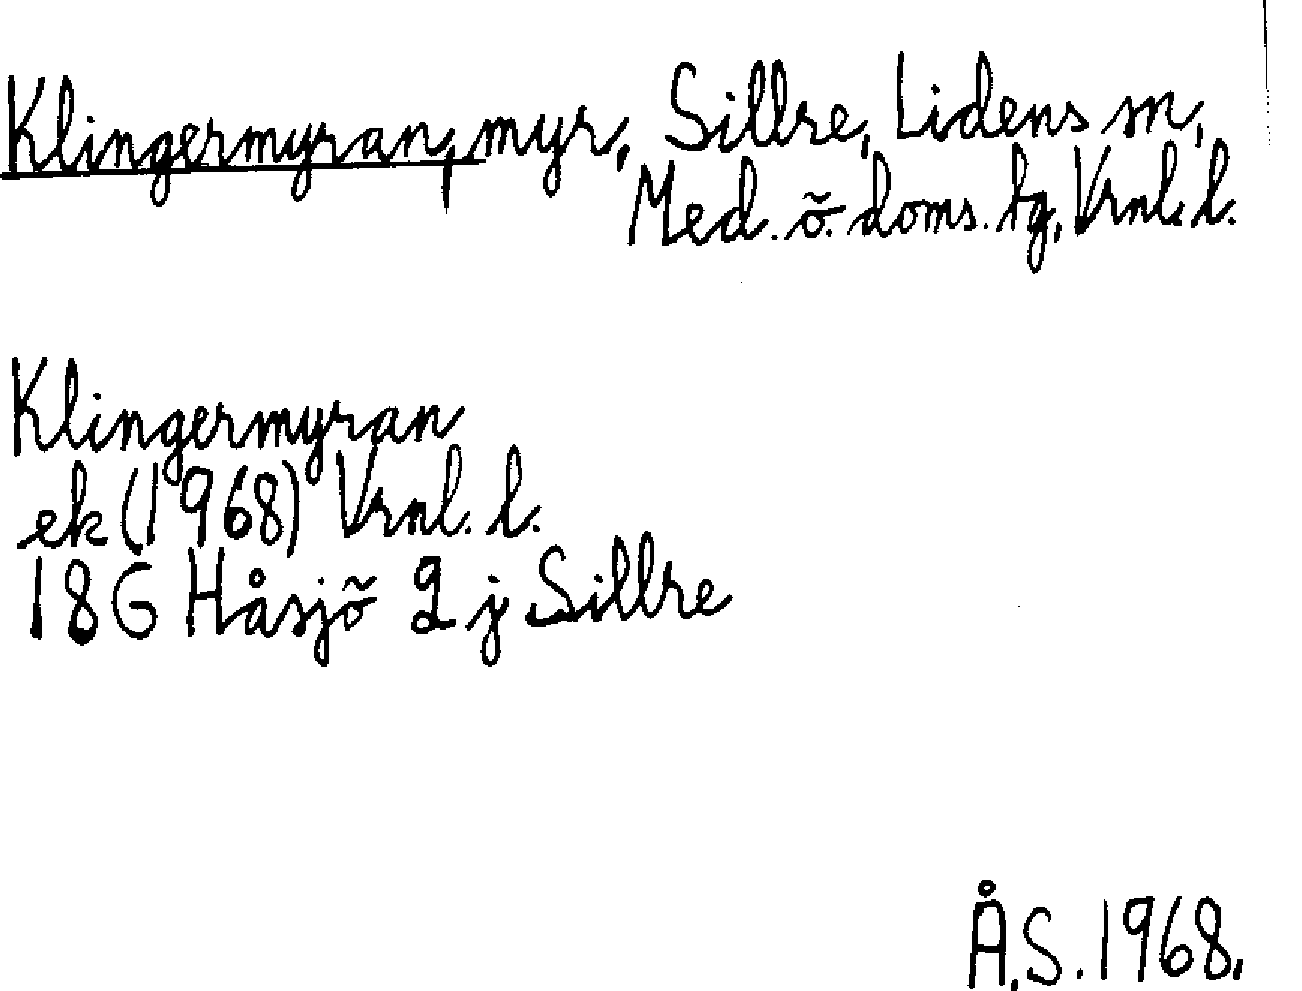 Klingermyran, myr, Sillre, Lidens sn,
Med. ö. doms. tg, Vrnl. l.
Klingermyran
ek (1968) Vrnl. l.
18G Håsjö 2 j Sillre
Å.S. 1968.